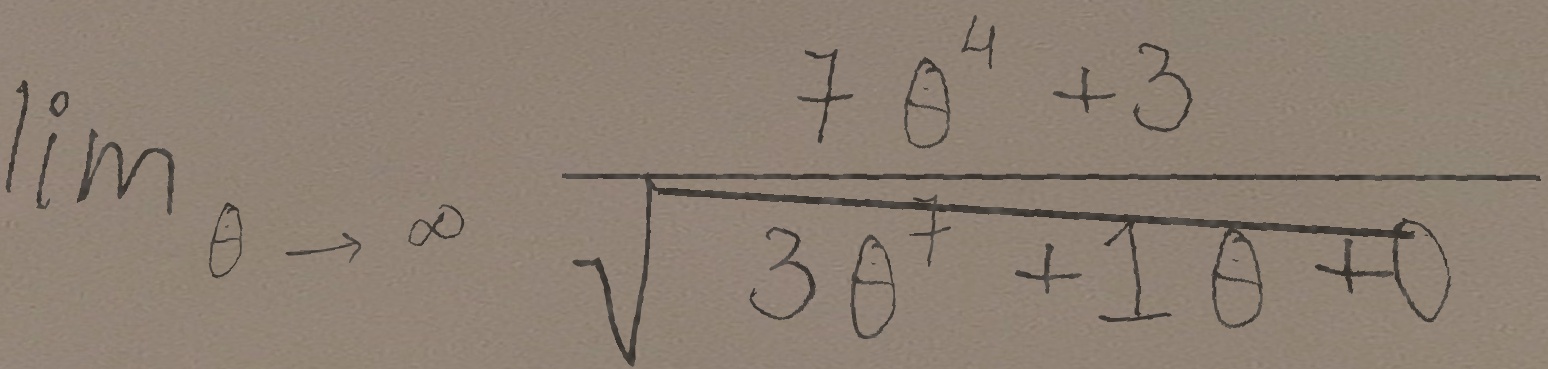 lim θ → ∞ \frac{7 θ^4 + 3}{\sqrt{3 θ^7 + 1 θ + 0}}